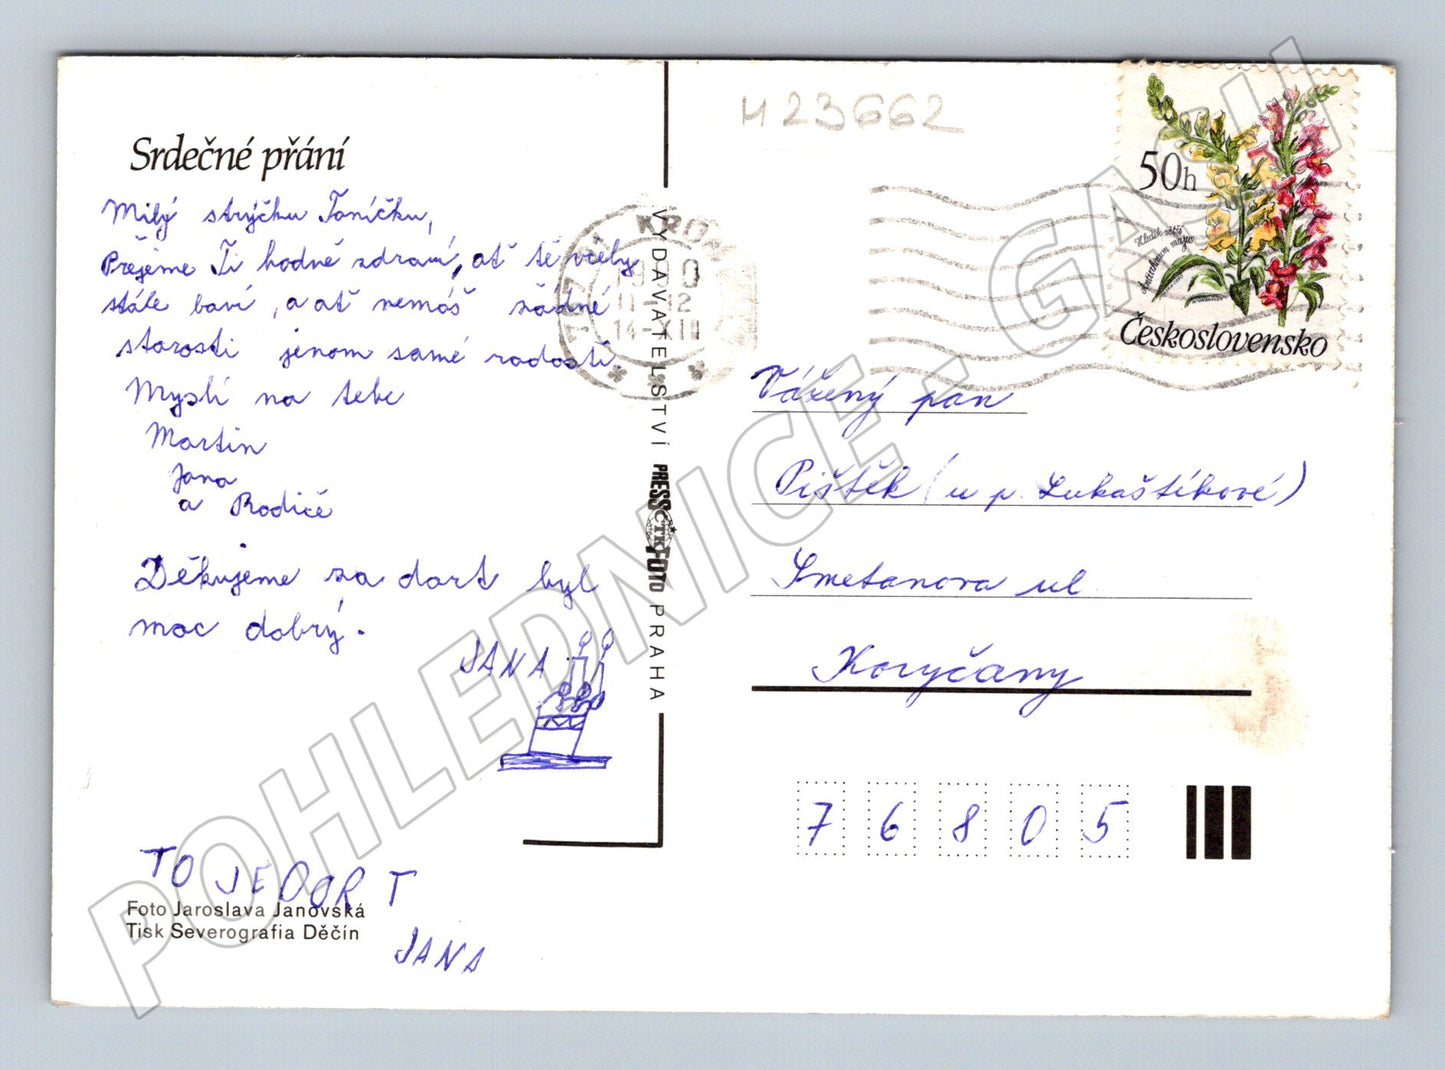 Srdečné přání
Milý strýčku Toníčku,
Přejeme Ti hodně zdraví, ať tě včely
stále baví, a ať nemáš žádné
starosti jenom samé radosti.
Myslí na tebe
Martin
Jana
a Rodiče
Děkujeme za dort byl
moc dobrý.
JANA
TO JE DORT
JANA
Foto Jaroslava Janovská
Tisk Severografia Děčín
VYDAVATELSTVÍ PRESSFOTO PRAHA
ČTK
H 23662
11-12
14-XII
50h
Hledík větší
Antirrhinum majus
Československo
Vážený pan
Pištěk (u p. Lukaštíkové)
Smetanova ul
Koryčany
76805
POHLEDNICE - GASU